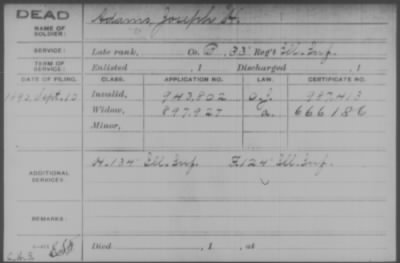 DEAD
NAME OF SOLDIER: Adams, Joseph H.
SERVICE: Late rank, Co. 33 Reg't Ill. Inf.
TERM OF SERVICE: Enlisted , 1 Discharged , 1
DATE OF FILING. CLASS. APPLICATION NO. LAW. CERTIFICATE NO.
1892, Sept. 12 Invalid, 943,802 987,413
Widow, 897,927 a. 666186
Minor,
ADDITIONAL SERVICES: H. 134" Ill. Inf. 124" Ill. Inf.
REMARKS:
Died , 1 , at